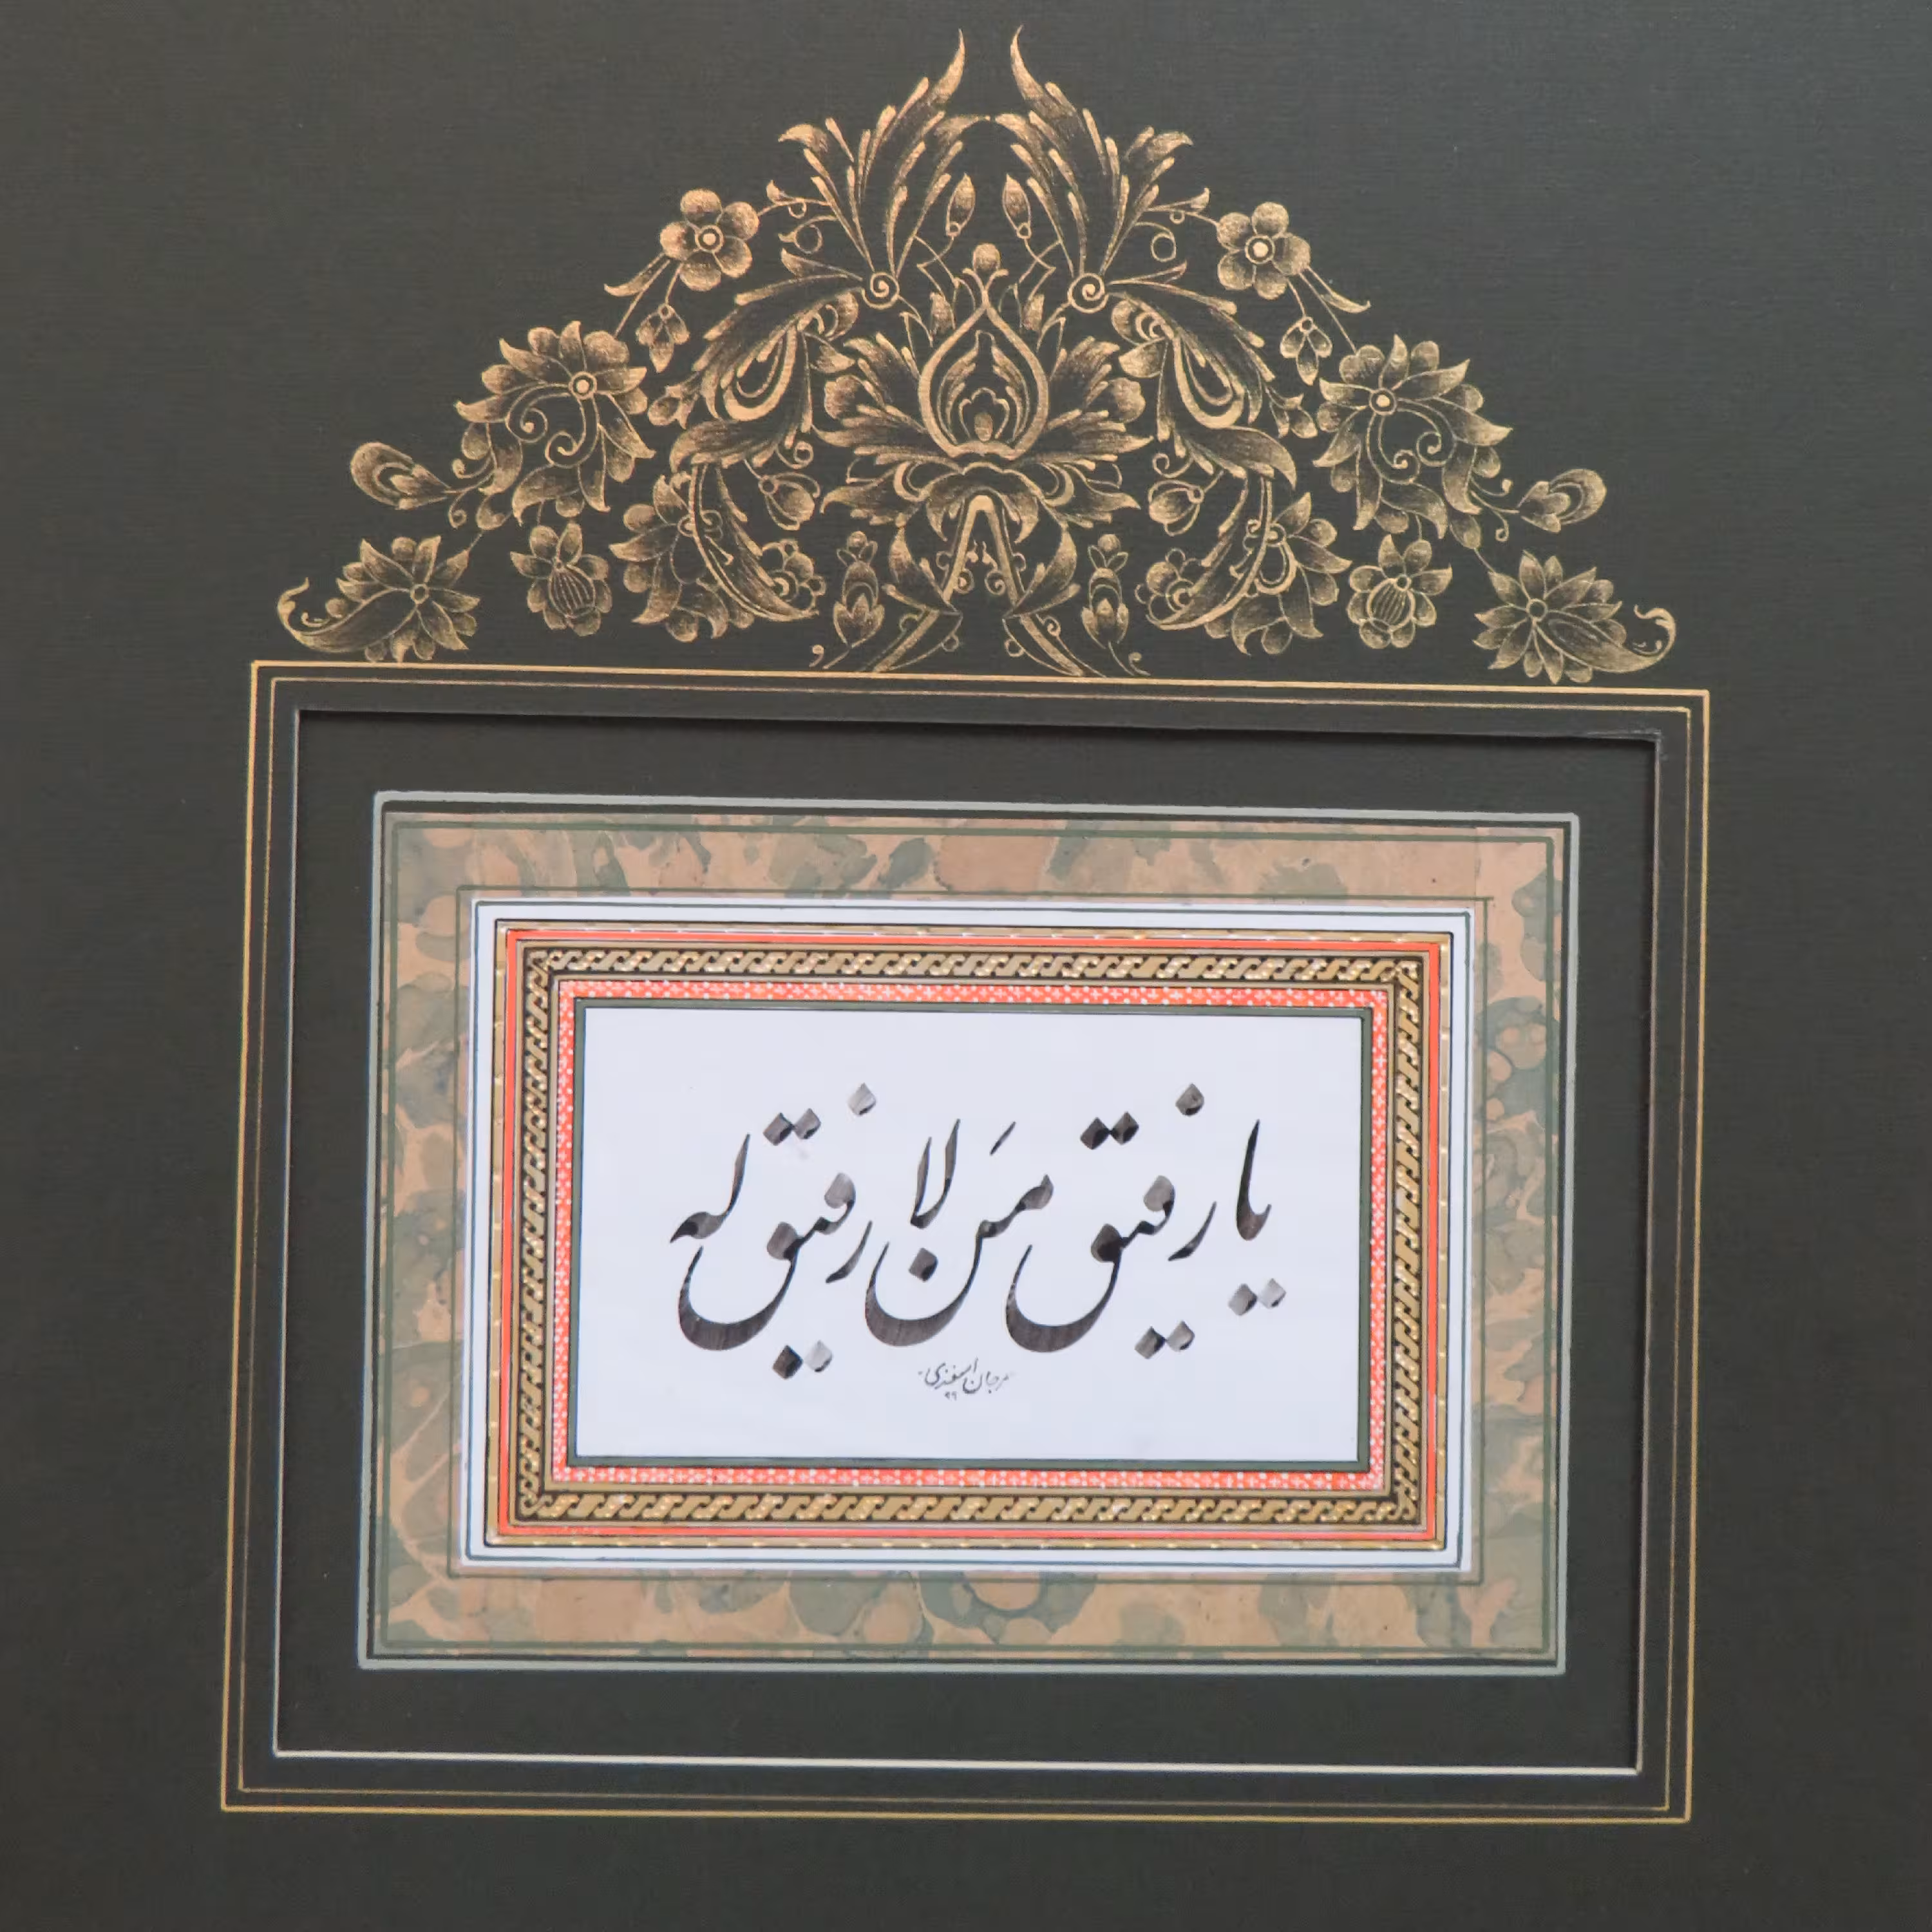 یا رفیق مَن لا رفیق له
مرجان اسفندی
۹۹